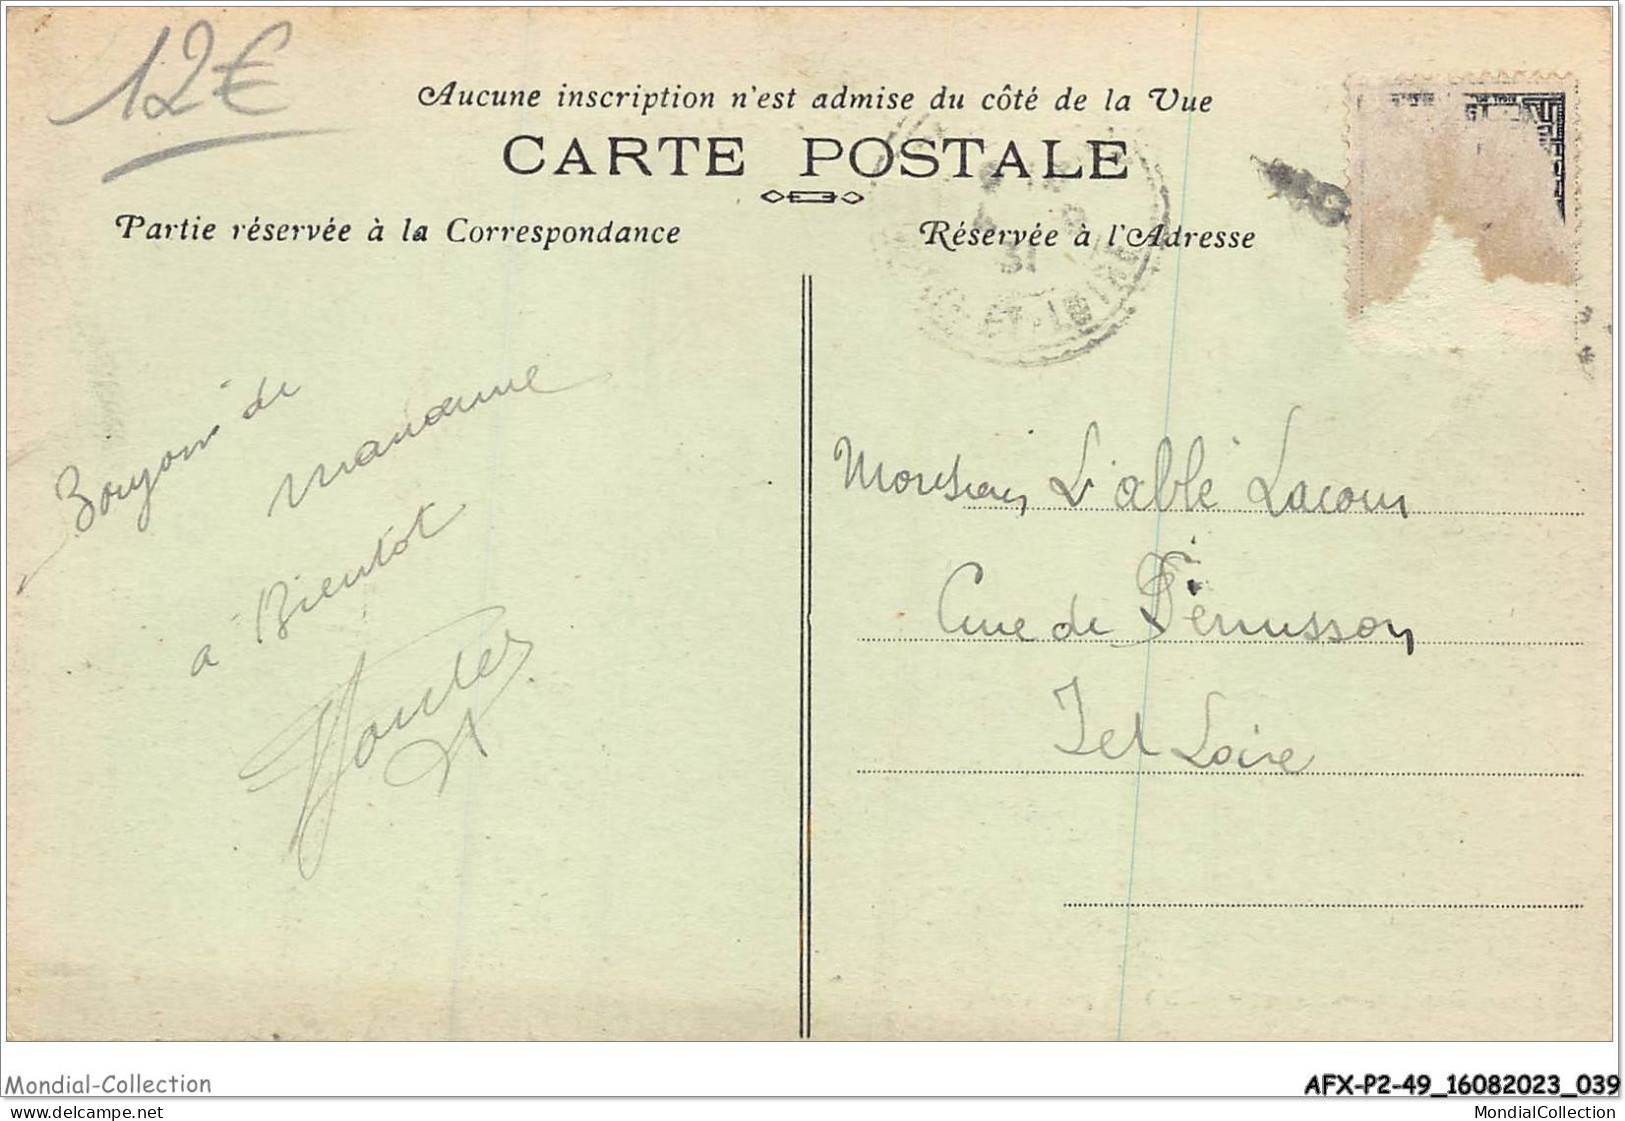 12€
Aucune inscription n'est admise du côté de la Vue
CARTE POSTALE
Partie réservée à la Correspondance
Réservée à l'Adresse
de
a Bientot
L'abbé Lacour
Cure de Perrusson
I et Loire
Mondial-Collection
AFX-P2-49_16082023_039
delcampe.net
MondialCollection